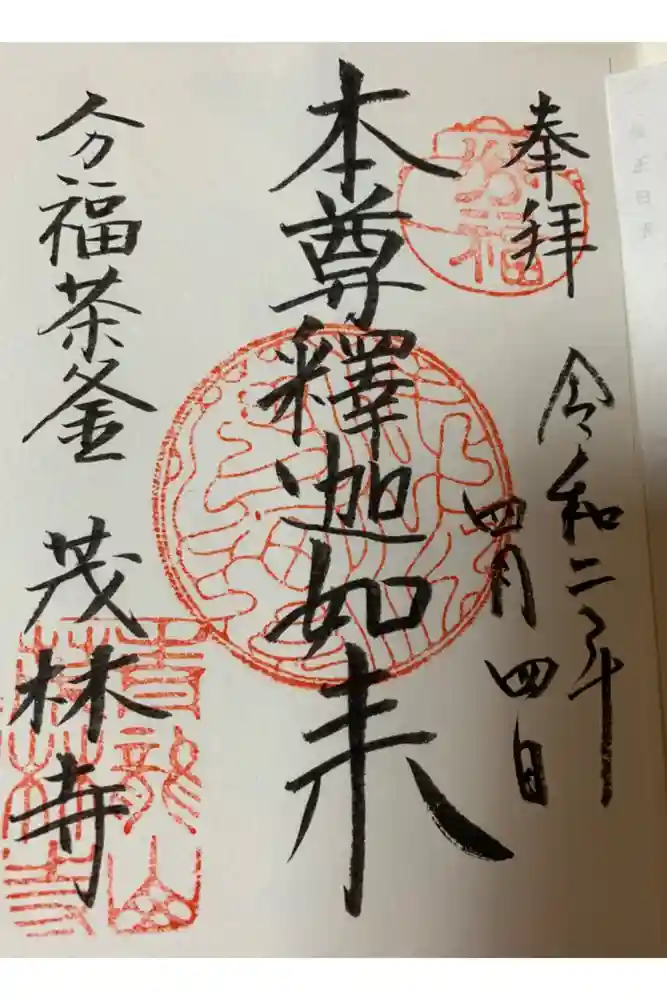 奉拝
令和二年
四月四日
本尊釋迦如来
分福茶釜 茂林寺
分福
青龍山
茂林寺